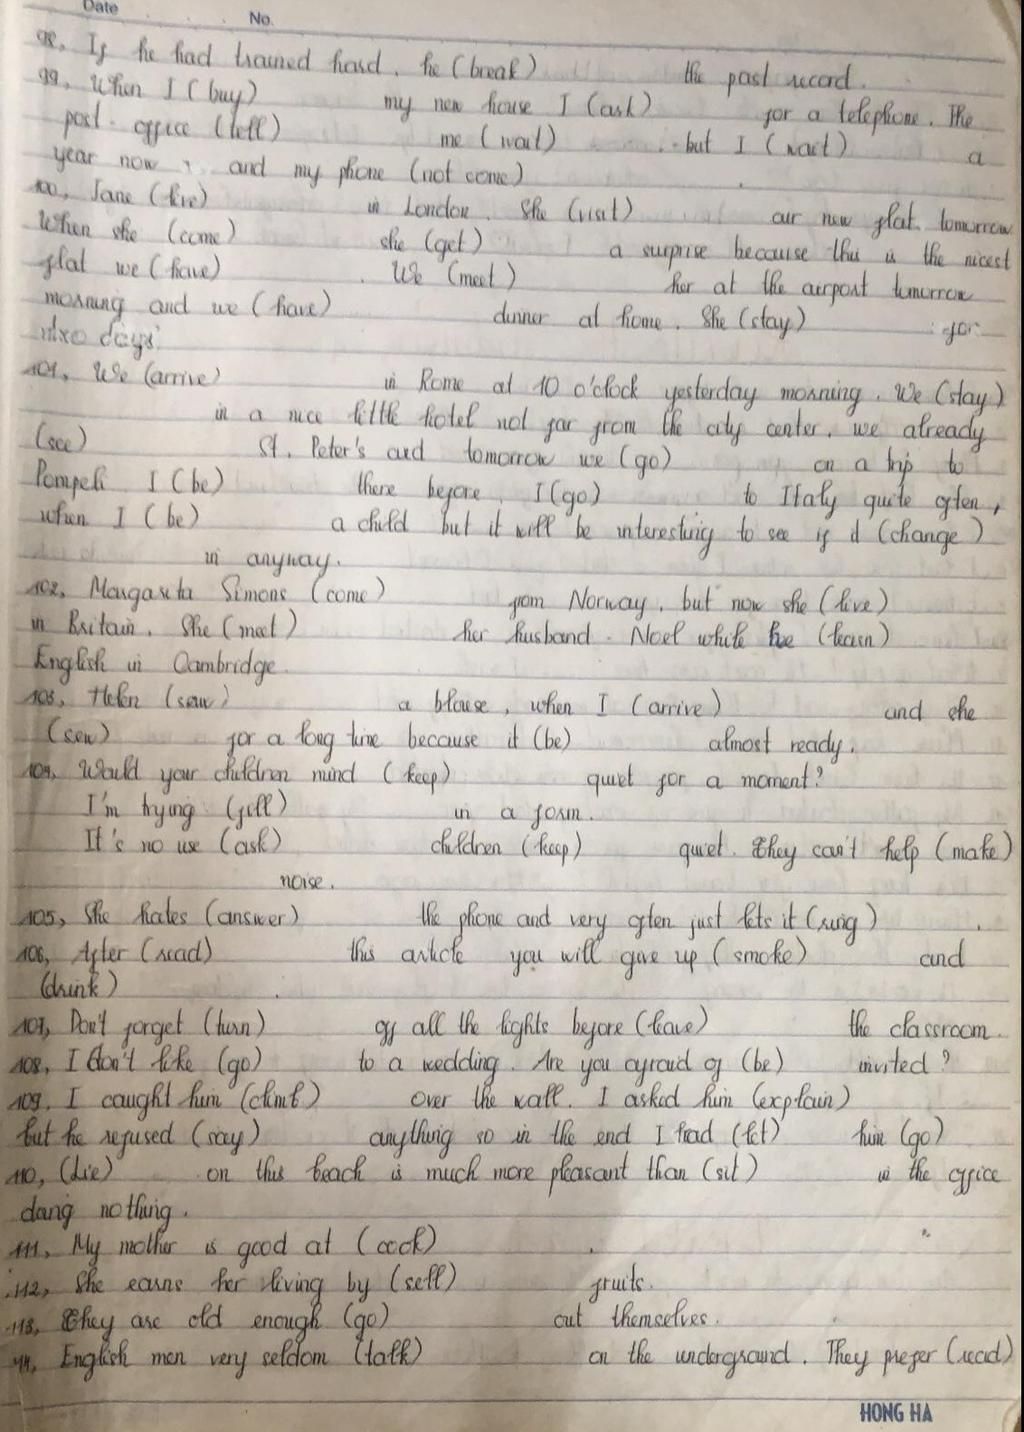 Date No.
98, If he had trained hard, he (break) the past record.
99, When I (buy) my new house I (ask) for a telephone. The
post office (tell) me (wait) but I (wait) a
year now, and my phone (not come)
100, Jane (live) in London. She (visit) our new flat tomorrow
When she (come) she (get) a surprise because this is the nicest
flat we (have) . We (meet) her at the airport tomorrow
morning and we (have) dinner at home. She (stay) for
days.
101, We (arrive) in Rome at 10 o'clock yesterday morning. We (stay)
in a nice little hotel not far from the city center, we already
(see) St. Peter's and tomorrow we (go) on a trip to
Pompeli. I (be) there before. I (go) to Italy quite often,
when I (be) a child but it will be interesting to see if it (change)
in anyway.
102, Margareta Simons (come) from Norway, but now she (live)
in Britain. She (meet) her husband. Noel while he (learn)
English in Cambridge.
103, Helen (sew) a blouse, when I (arrive) and she
(sew) for a long time because it (be) almost ready.
104, Would your children mind (keep) quiet for a moment?
I'm trying (fill) in a form.
It's no use (ask) children (keep) quiet. They can't help (make)
noise.
105, She hates (answer) the phone and very often just lets it (ring) .
106, After (read) this article you will give up (smoke) and
(drink) .
107, Don't forget (turn) off all the lights before (leave) the classroom.
108, I don't like (go) to a wedding. Are you afraid of (be) invited?
109, I caught him (climb) over the wall. I asked him (explain)
but he refused (say) anything so in the end I had (let) him (go)
110, (Lie) on this beach is much more pleasant than (sit) in the office
doing nothing.
111, My mother is good at (cook) .
112, She earns her living by (sell) fruits.
113, They are old enough (go) out themselves.
114, English men very seldom (talk) on the underground. They prefer (read)
HONG HA